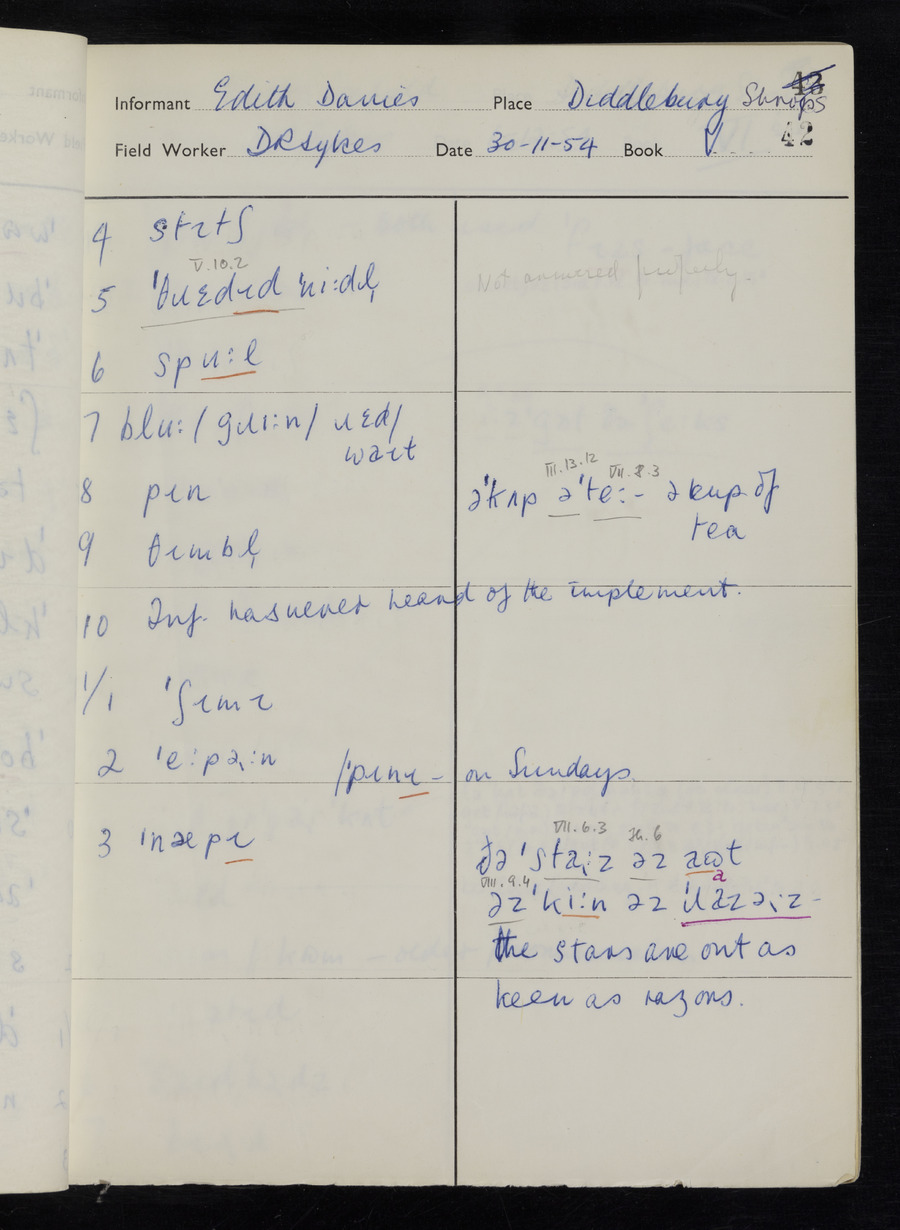 Informant Edith Davies Place Diddlebury Shrops 43
Field Worker DRSykes Date 30-11-54 Book V 42
4 stɪtʃ
V.10.2
5 'θɹɛdɪd 'ni:dl̩ Not answered properly.
6 spu:l
7 blu:/ gɹi:n/ ɹɛd/
waɪt
8 pɪn
III.13.12 VII.8.3
ə'kʌp ə'te:- a cup of
tea
9 θɪmbl̩
10 Inf. has never heard of the implement.
1/1 'ʃɪmɪ
2 'e:pəɹ:n /'pɪnɪ - on Sundays.
3 'næpɪ
VII.6.3 IX.6
ðə 'staɹ:z əz aʊt
VIII.9.4 a
əz 'ki:n əz 'ɹazəɹz -
the stars are out as
keen as razors.